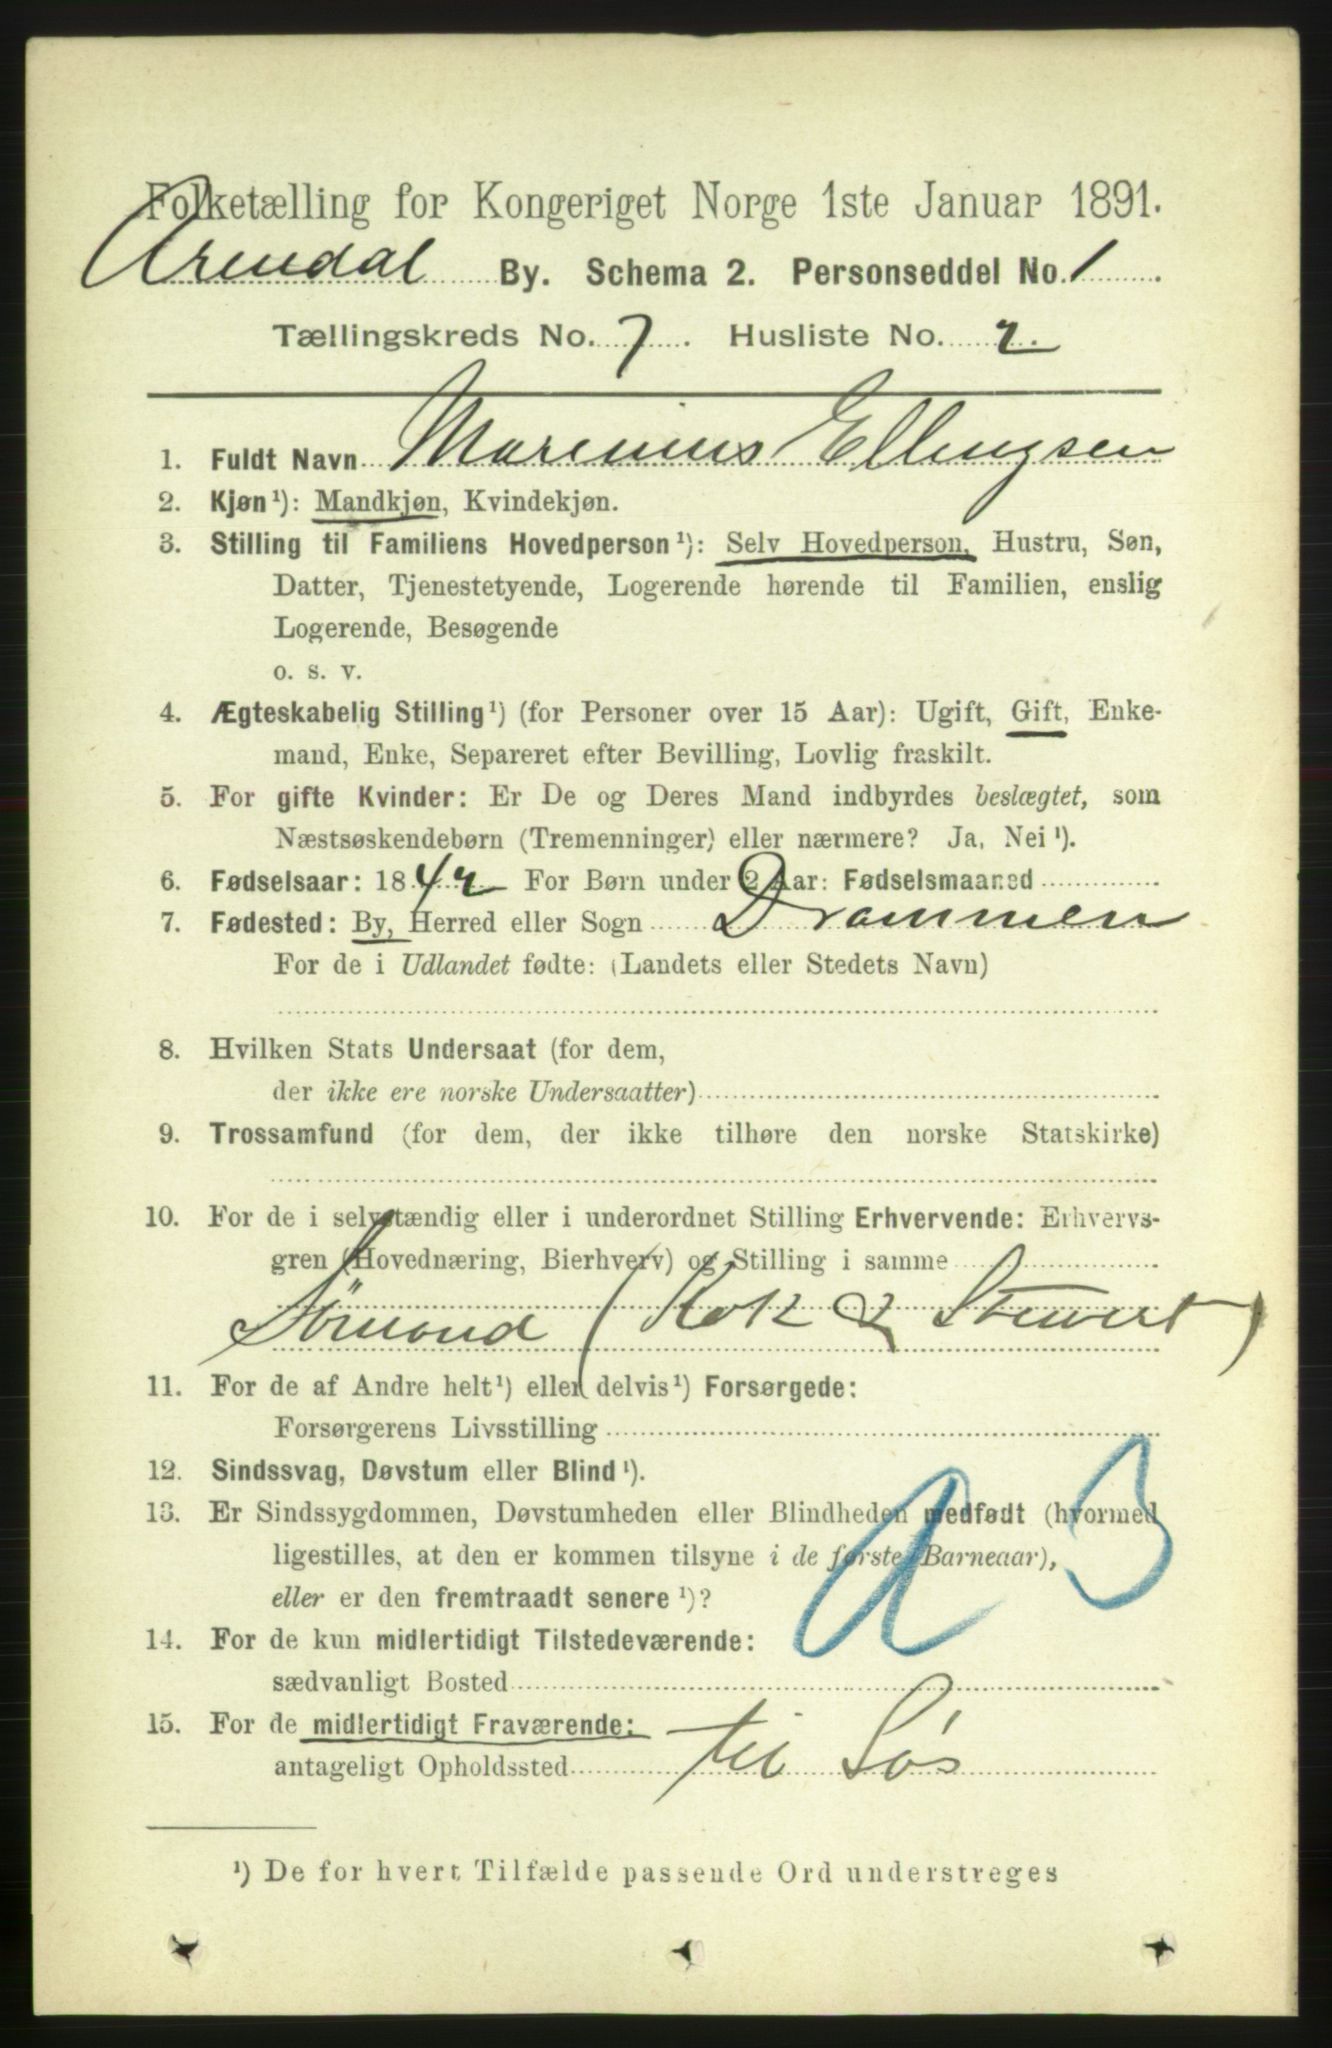 Folketælling for Kongeriget Norge 1ste Januar 1891.
Arendal By. Schema 2. Personseddel No. 1
Tællingskreds No. 7. Husliste No. 2.
1. Fuldt Navn Marenius Ellingsen
2. Kjøn¹): Mandkjøn, Kvindekjøn.
3. Stilling til Familiens Hovedperson¹): Selv Hovedperson, Hustru, Søn,
Datter, Tjenestetyende, Logerende hørende til Familien, enslig
Logerende, Besøgende
o. s. v.
4. Ægteskabelig Stilling¹) (for Personer over 15 Aar): Ugift, Gift, Enke-
mand, Enke, Separeret efter Bevilling, Lovlig fraskilt.
5. For gifte Kvinder: Er De og Deres Mand indbyrdes beslægtet, som
Næstsøskendebørn (Tremenninger) eller nærmere? Ja, Nei¹).
6. Fødselsaar: 1842 For Børn under 2 Aar: Fødselsmaaned
7. Fødested: By, Herred eller Sogn Drammen
For de i Udlandet fødte: (Landets eller Stedets Navn)
8. Hvilken Stats Undersaat (for dem,
der ikke ere norske Undersaatter)
9. Trossamfund (for dem, der ikke tilhøre den norske Statskirke)
10. For de i selvstændig eller i underordnet Stilling Erhvervende: Erhvervs-
gren (Hovednæring, Bierhverv) og Stilling i samme
Sømand (Kok & Stuvert)
11. For de af Andre helt¹) eller delvis¹) Forsørgede:
Forsørgerens Livsstilling
12. Sindssvag, Døvstum eller Blind¹).
13. Er Sindssygdommen, Døvstumheden eller Blindheden medfødt (hvormed
ligestilles, at den er kommen tilsyne i de første Barneaar),
eller er den fremtraadt senere¹)?
14. For de kun midlertidigt Tilstedeværende:
sædvanligt Bosted
15. For de midlertidigt Fraværende:
antageligt Opholdssted til Søs
¹) De for hvert Tilfælde passende Ord understreges